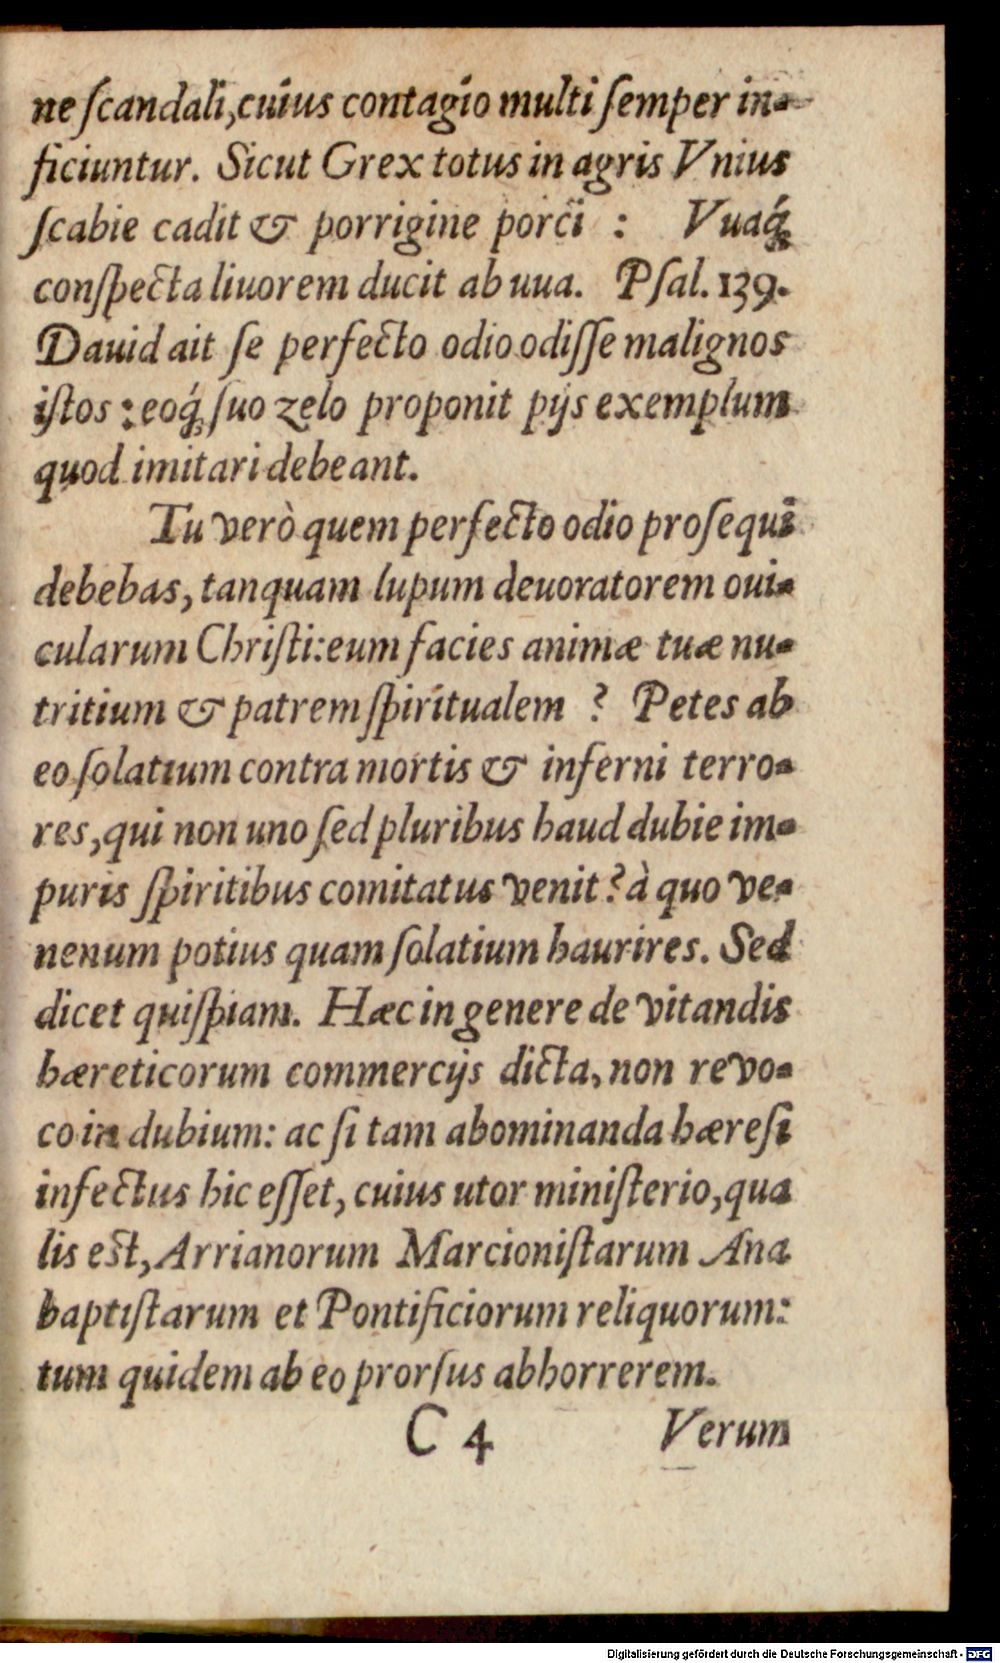 ne ſcandali, cuius contagio multi ſemper in-
ficiuntur. Sicut Grex totus in agris Vnius
ſcabie cadit & porrigine porci : Vuaq́;
conſpecta liuorem ducit ab uua. Pſal. 139.
Dauid ait ſe perfecto odio odiſſe malignos
iſtos : eoq́; ſuo zelo proponit pijs exemplum
quod imitari debeant.
Tu verò quem perfecto odio proſequi
debebas, tanquam lupum deuoratorem oui-
cularum Chriſti: eum facies animæ tuæ nu-
tritium & patrem ſpiritualem ? Petes ab
eo ſolatium contra mortis & inferni terro-
res, qui non uno ſed pluribus haud dubie im-
puris ſpiritibus comitatus venit ? à quo ve-
nenum potius quam ſolatium haurires. Sed
dicet quiſpiam. Hæc in genere de vitandis
hæreticorum commercijs dicta, non revo-
co in dubium: ac ſi tam abominanda hæreſi
infectus hic eſſet, cuius utor miniſterio, qua
lis eſt, Arrianorum Marcioniſtarum Ana
baptiſtarum et Pontificiorum reliquorum:
tum quidem ab eo prorſus abhorrerem.
C 4 Verum
Digitalisierung gefördert durch die Deutsche Forschungsgemeinschaft - DFG